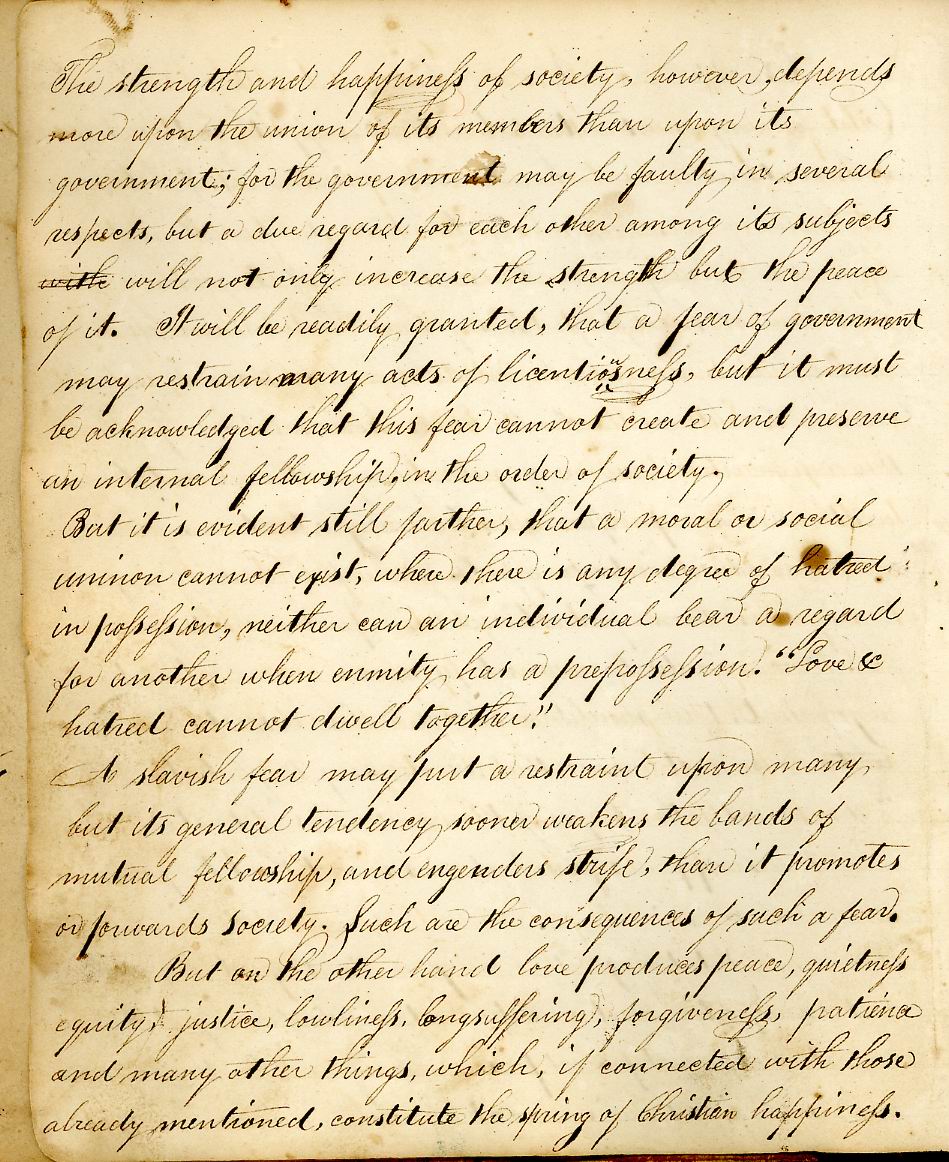 The strength and happiness of society, however, depends
more upon the union of its members than upon its
government; for the government may be faulty in several
respects, but a due regard for each other among its subjects
with will not only increase the strength but the peace
of it. It will be readily granted, that a fear of government
may restrain many acts of licentiousness, but it must
be acknowledged that this fear cannot create and preserve
an internal fellowship, in the order of society.
But it is evident still farther, that a moral or social
uninon cannot exist, where there is any degree of hatred
in possession, neither can an individual bear a regard
for another when enmity has a prepossession. "Love &
hatred cannot dwell together."
A slavish fear may put a restraint upon many,
but its general tendency sooner weakens the bands of
mutual fellowship, and engenders strife, than it promotes
or forwards society. Such are the consequences of such a fear.
But on the other hand love produces peace, quietness
equity, justice, lowliness, longsuffering, forgiveness, patience
and many other things, which, if connected with those
already mentioned, constitute the spring of Christian happiness.